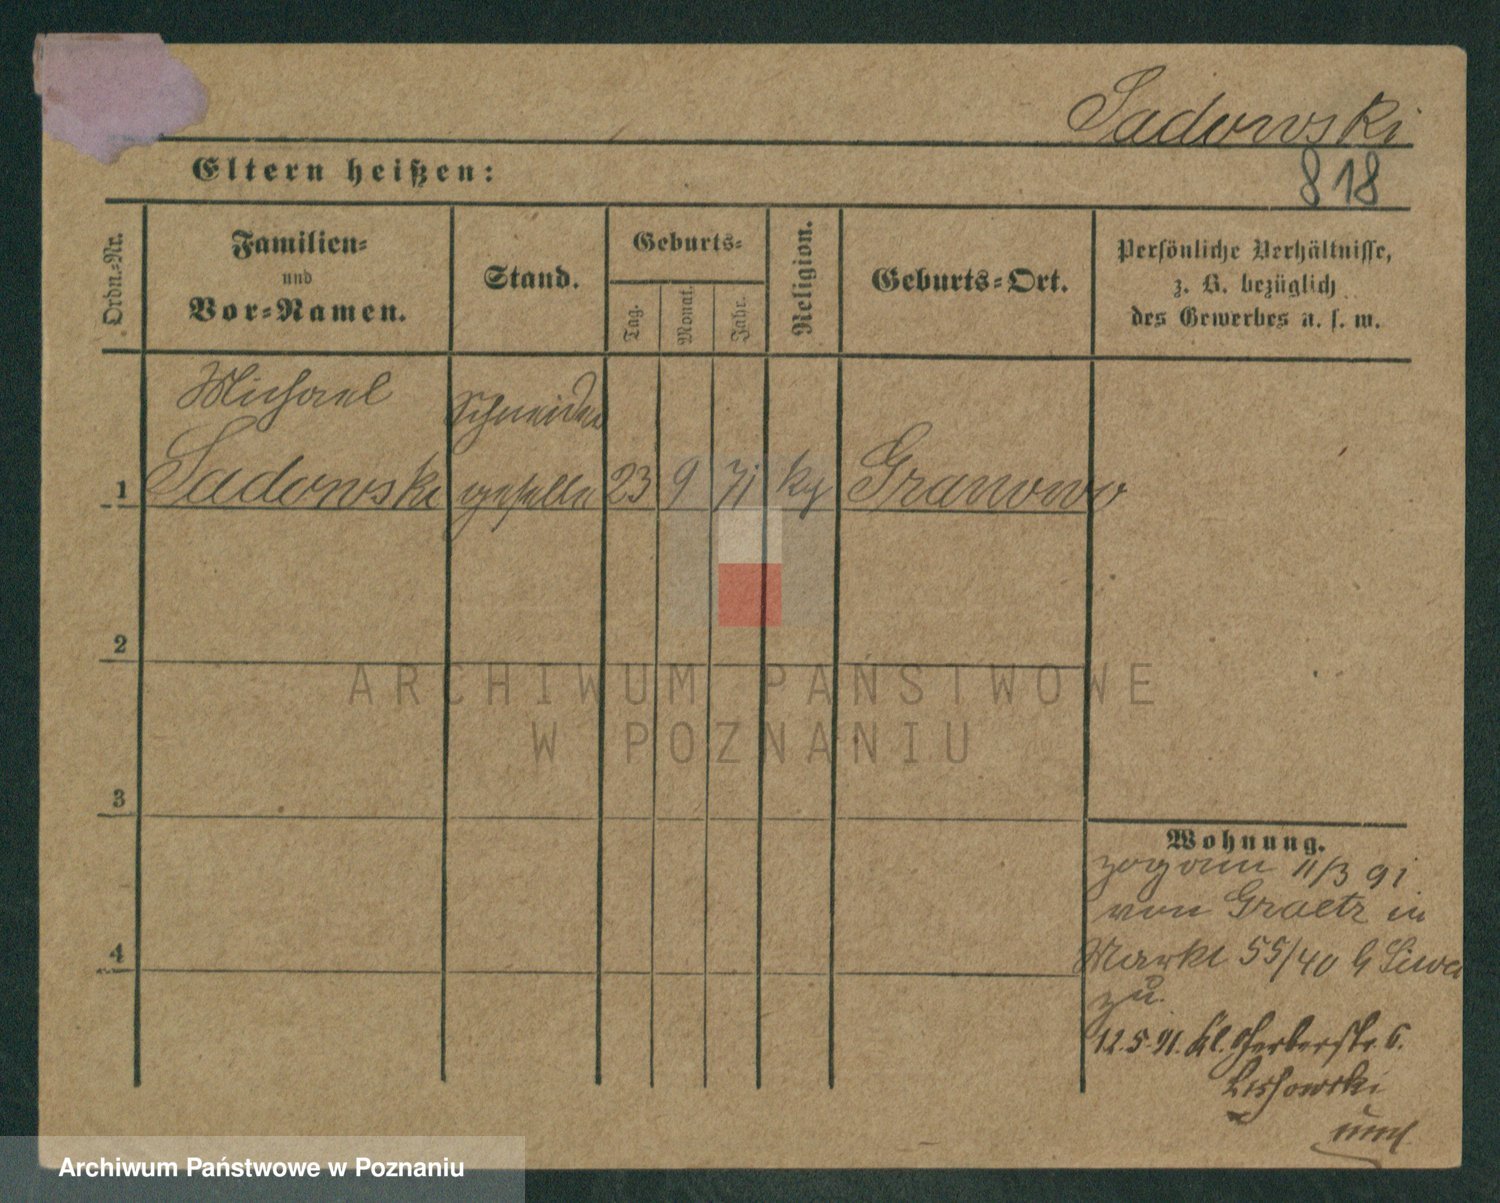 Sadowski
818
Eltern heißen:
Ordn.-Nr.
Familien-
und
Vor-Namen.
Stand.
Geburts-
Tag.
Monat.
Jahr.
Religion.
Geburts-Ort.
Persönliche Verhältnisse,
z. B. bezüglich
des Gewerbes u. s. w.
Michael Schneider
1 Sadowski geselle 23 9 71 Granowo
2
3
4
Wohnung.
zog am 11/3 91
von Graetz in
Markt 55/40 b
zu.
12.5.91. Kl. Gerberstr. 6.
ARCHIWUM PAŃSTWOWE
W POZNANIU
Archiwum Państwowe w Poznaniu